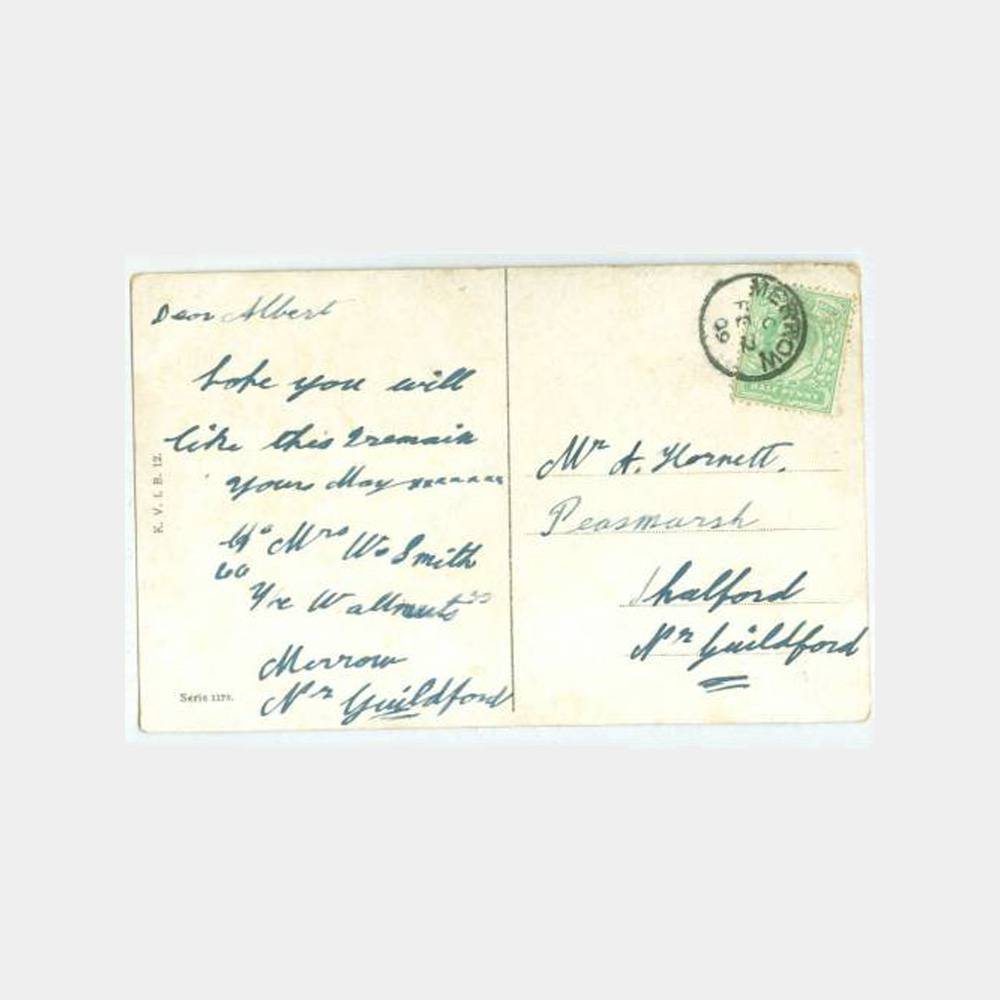 Dear Albert
hope you will
like this I remain
yours May xxxxxxx
Mrs W Smith
60
Merrow
Nr Guildford
K. V. I. B. 12.
Serie 1178.
MERROW
09
HALF PENNY
Mr A. Hornett.
Peasmarsh
Shalford
Nr Guildford